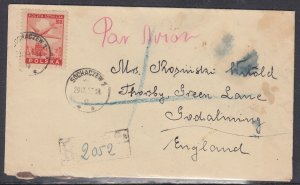 POCZTA LOTNICZA
POLSKA
SOCHACZEW 2
Par Avion
Mrs. Kosinski Witold
Thorby, Green Lane
Godalming
England
2052